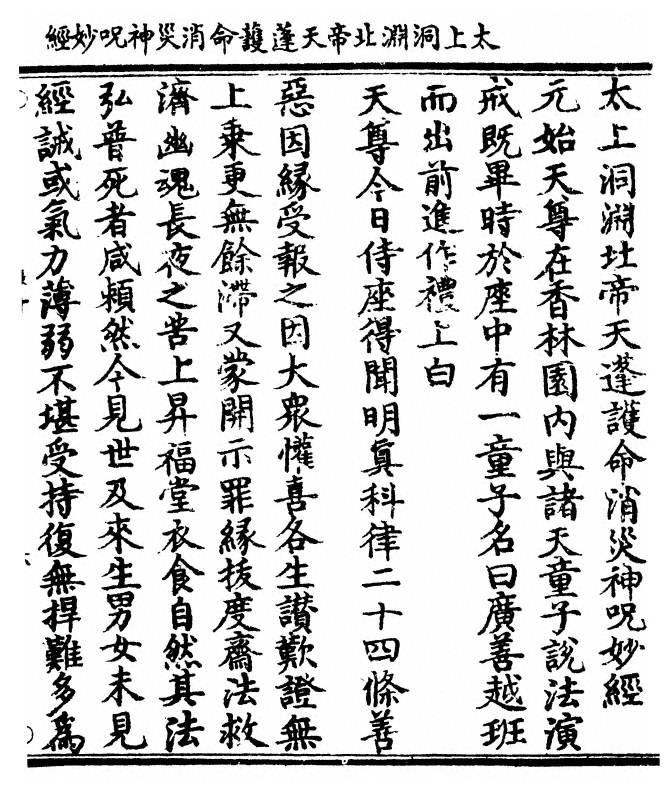 太上洞淵北帝天蓬護命消災神呪妙經
太上洞淵北帝天蓬護命消災神呪妙經
元始天尊在香林園內與諸天童子說法演
戒既畢時於座中有一童子名曰廣善越班
而出前進作禮上白
天尊今日侍座得聞明真科律二十四條善
惡因緣受報之因大眾懽喜各生讃歎證無
上乗更無餘滯又蒙開示罪緣拔度齋法救
濟幽魂長夜之苦上昇福堂衣食自然其法
弘普死者咸頼然今見世及來生男女未見
經誡或氣力薄弱不堪受持復無捍難多為